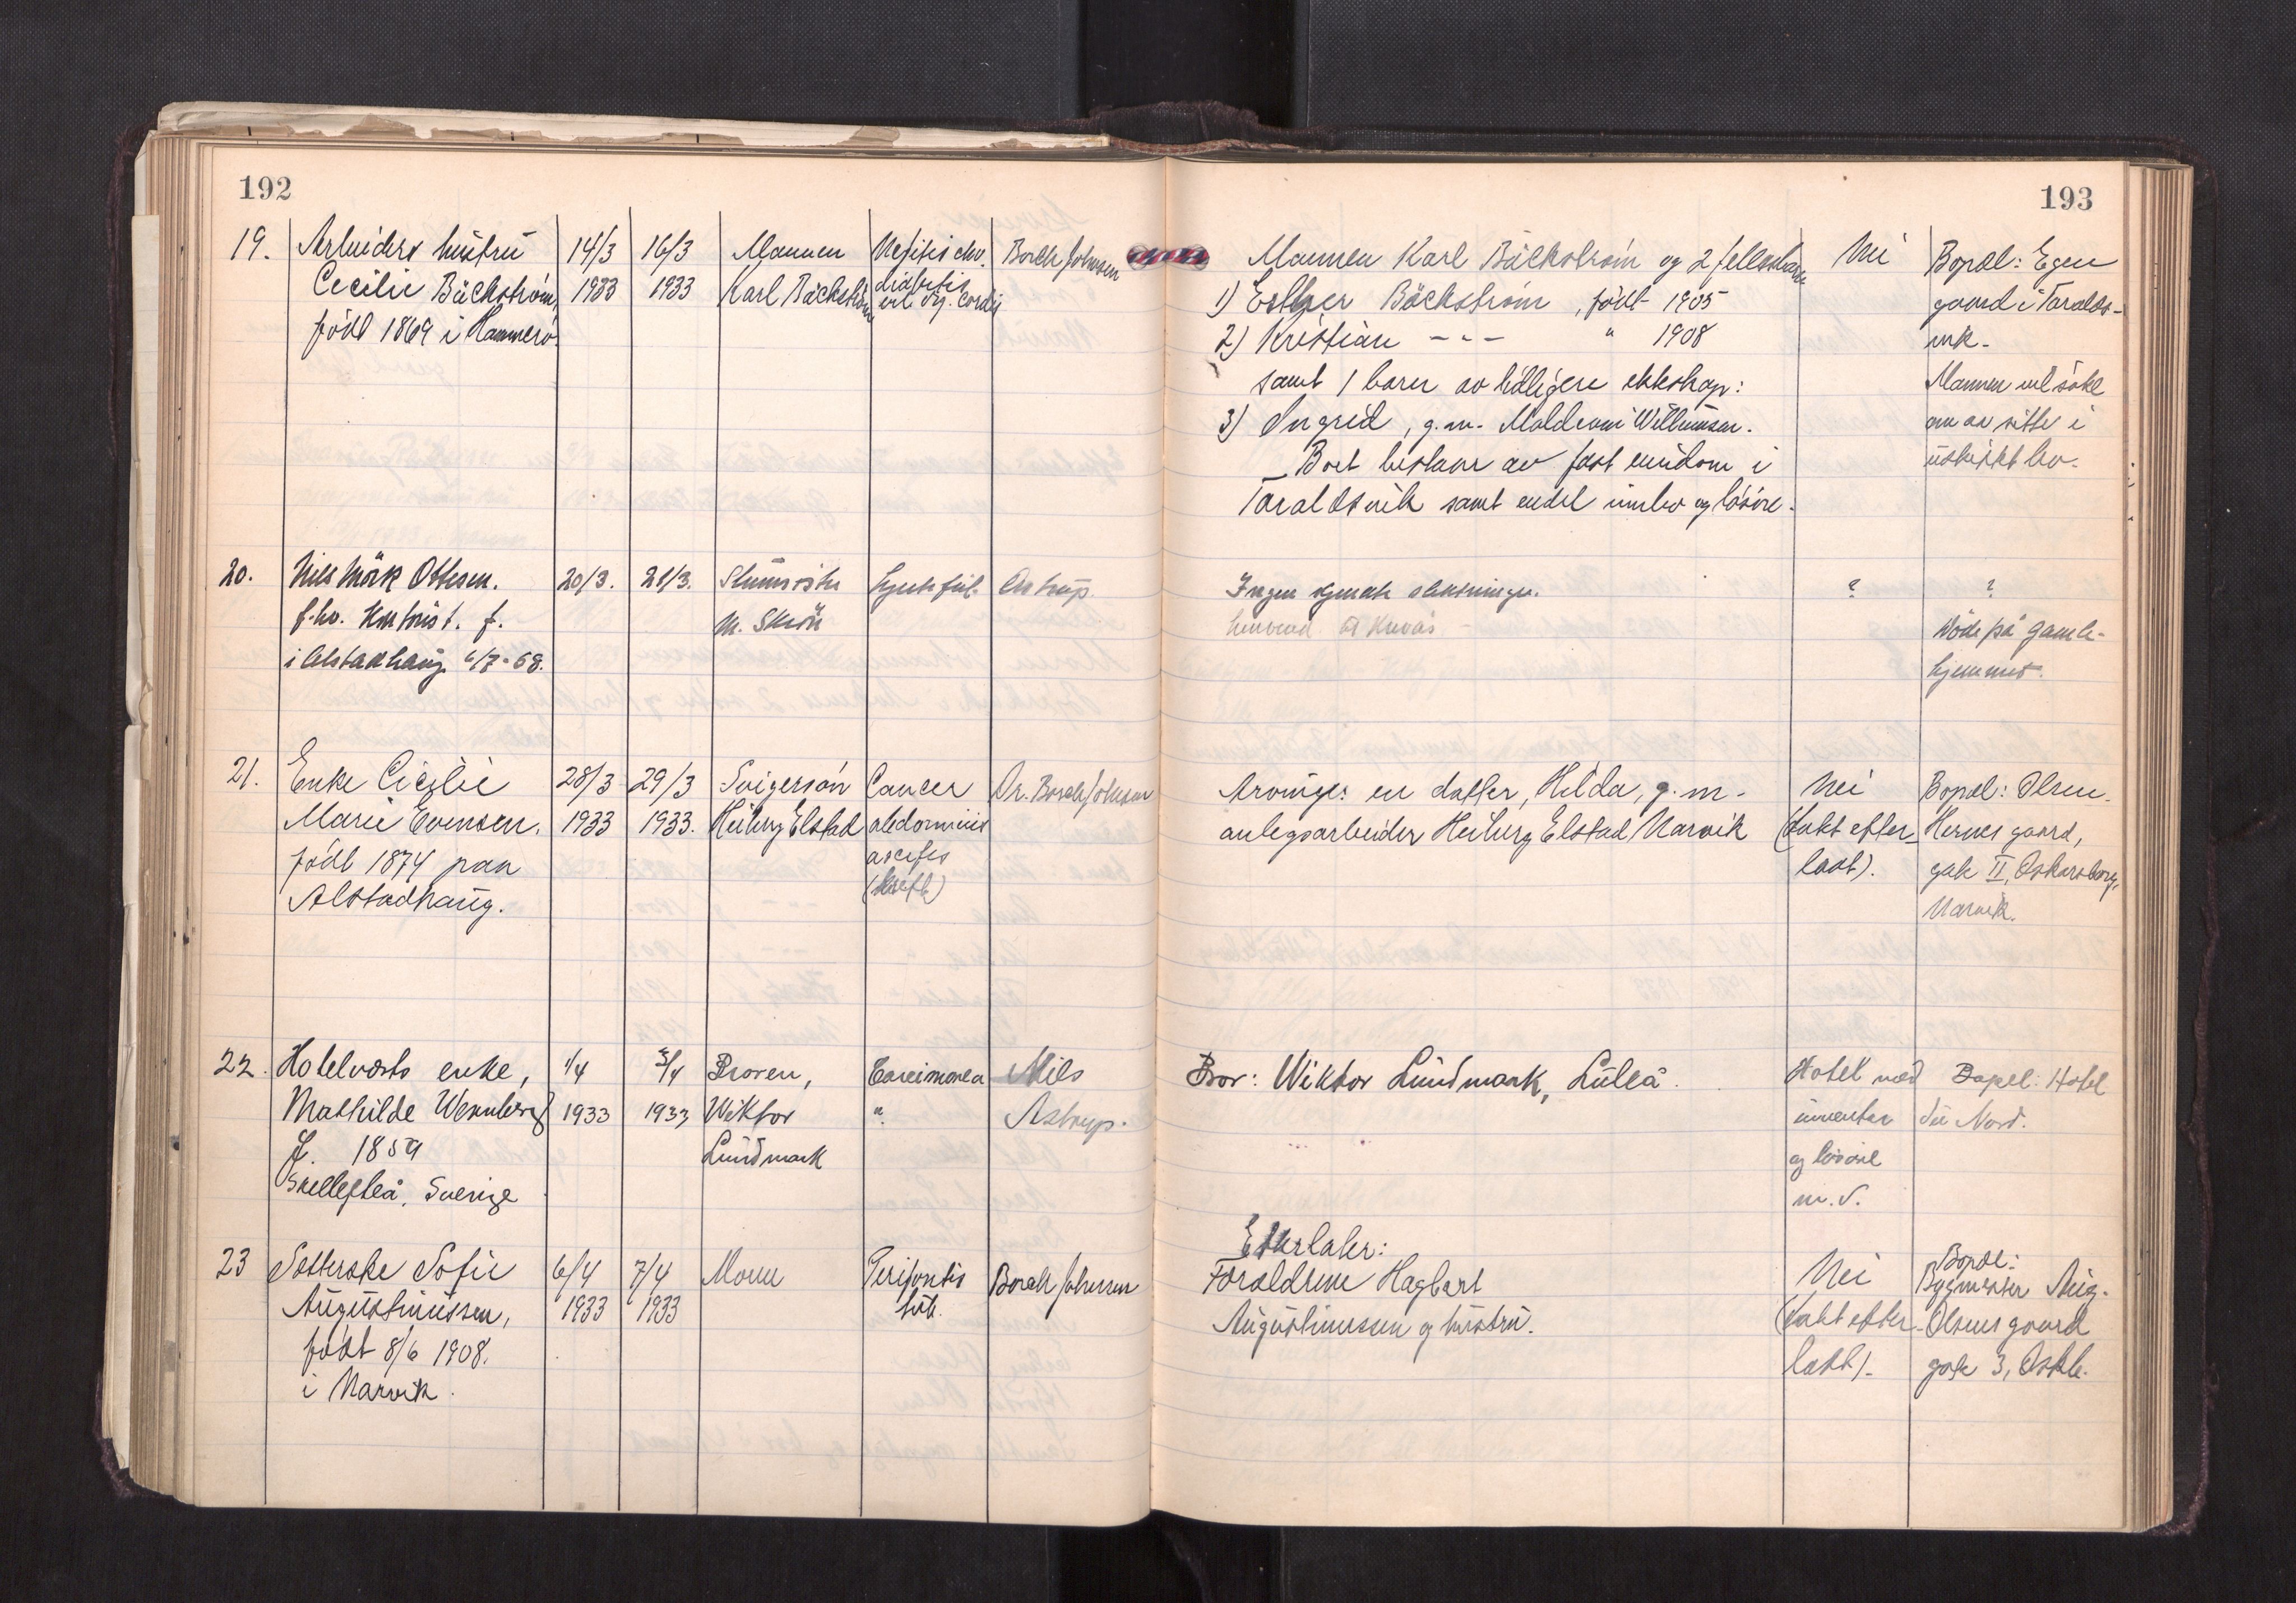 192
19. Arbeiders hustru 14/3 16/3 Mannen Nefitis chr. Borch Johnsen
Cecilie Bäckström, 1933 1933 Karl Bäckström diabetis
født 1869 i Hammerø. vit. org. cordis
20. Nils Mörk Ottesen. 20/3. 21/3. Hjertefeil. Astrup.
f.hv. Kontorist. f. M.
i Alstadhaug 6/7-58.
21. Enke Cicilie 28/3 29/3 Svigersøn Cancer Dr. Borch Johnsen
Marie Evensen. 1933 1933. Heiberg Elstad abdominis
født 1874 paa ascites
Alstadhaug. (kreft)
22. Hotelværts enke, 1/4 3/4 Broren, Nils
Mathilde Wennberg 1933 1933 Wiktor " Astrup.
f. 1859 Lundmark
Skellefteå, Sverige
23 Sofie 6/4 7/4 Moren Peritonitis Borch Johnsen
Augustinussen, 1933 1933 tub.
født 8/6 1908.
i Narvik.
193
Mannen Karl Bäckström og 2 fellesbarn Nei Bopæl: Egen
1) Esther Bäckström, født 1905 gaard i Taralds-
2) Kristian - " - " 1908 vik.
samt 1 barn av tidligere ekteskap: Mannen vil søke
3) Ingrid, g.m. Willumsen. om av sitte i
Boet bestaar av fast eiendom i uskiftet bo.
Taraldsvik samt endel innbo og løsøre.
Ingen kjente slektninger. ? ?
Døde på gamle-
hjemmet.
Arving: en datter, Hilda, g.m. Nei Bopæl: Olsen
anlegsarbeider Heiberg Elstad, Narvik (intet efter- Hernes gaard,
latt). gate II, Oskarsborg,
Narvik.
Bror: Wiktor Lundmark, Luleå. Hotel med Bopæl: Hotel
inventar du Nord.
og løsøre
m.v.
Efterlater:
Foreldrene Hagbart Nei Bopæl:
Augustinussen og hustru. (intet efter- Bygmester Aug.
latt). Olsens gaard
gate 3, Oskb.